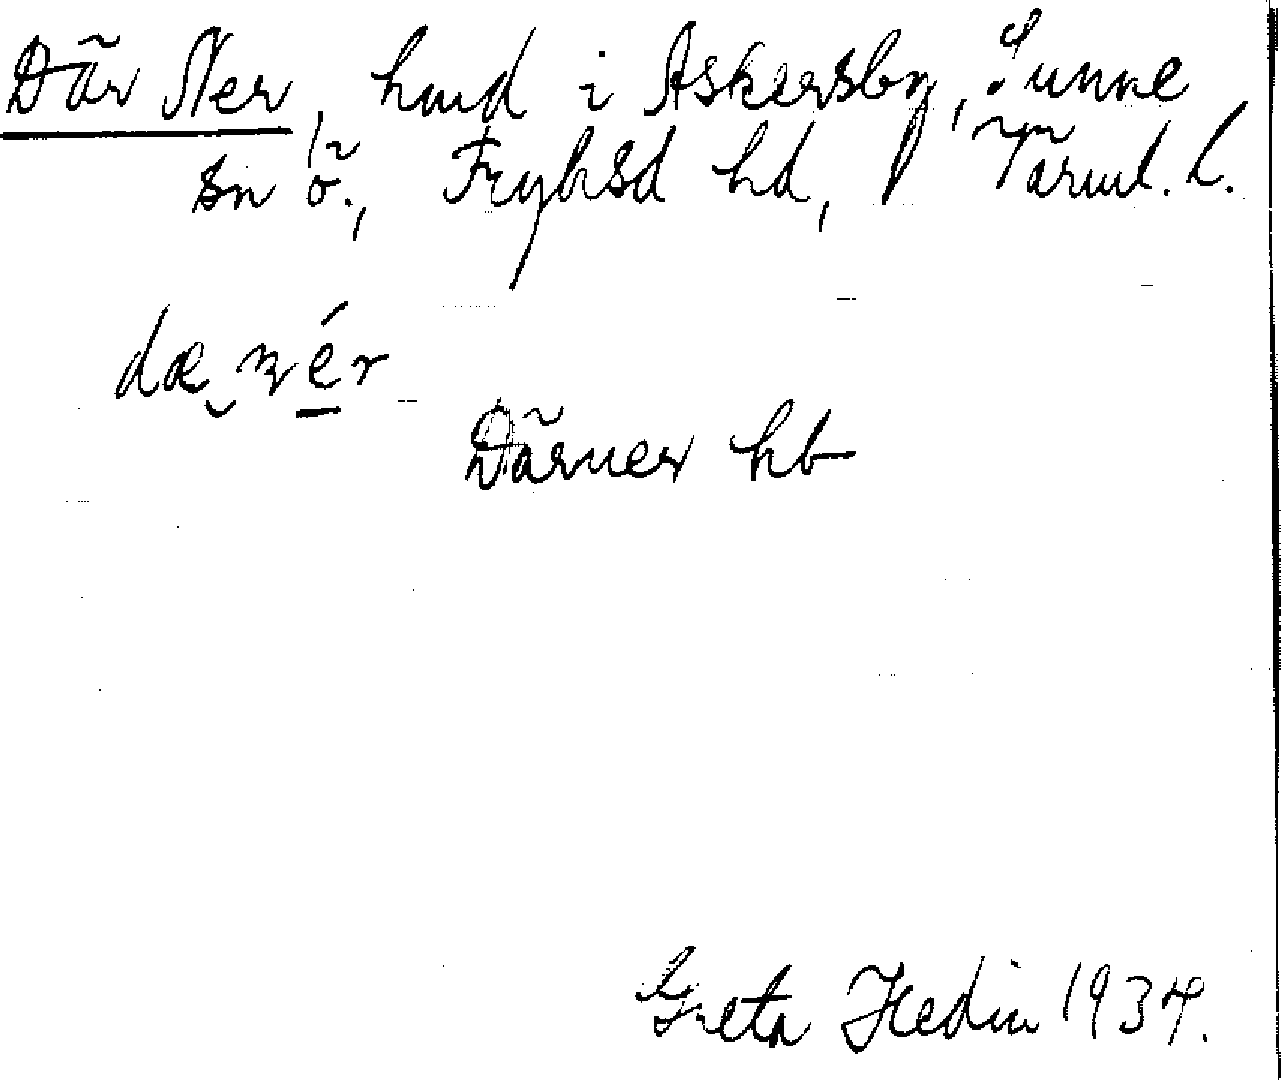 Där Ner, hmd i Askersby, Sunne
sn ö., Fryksd hd, Värml. l.
Därner hb
Greta Hedin 1934.